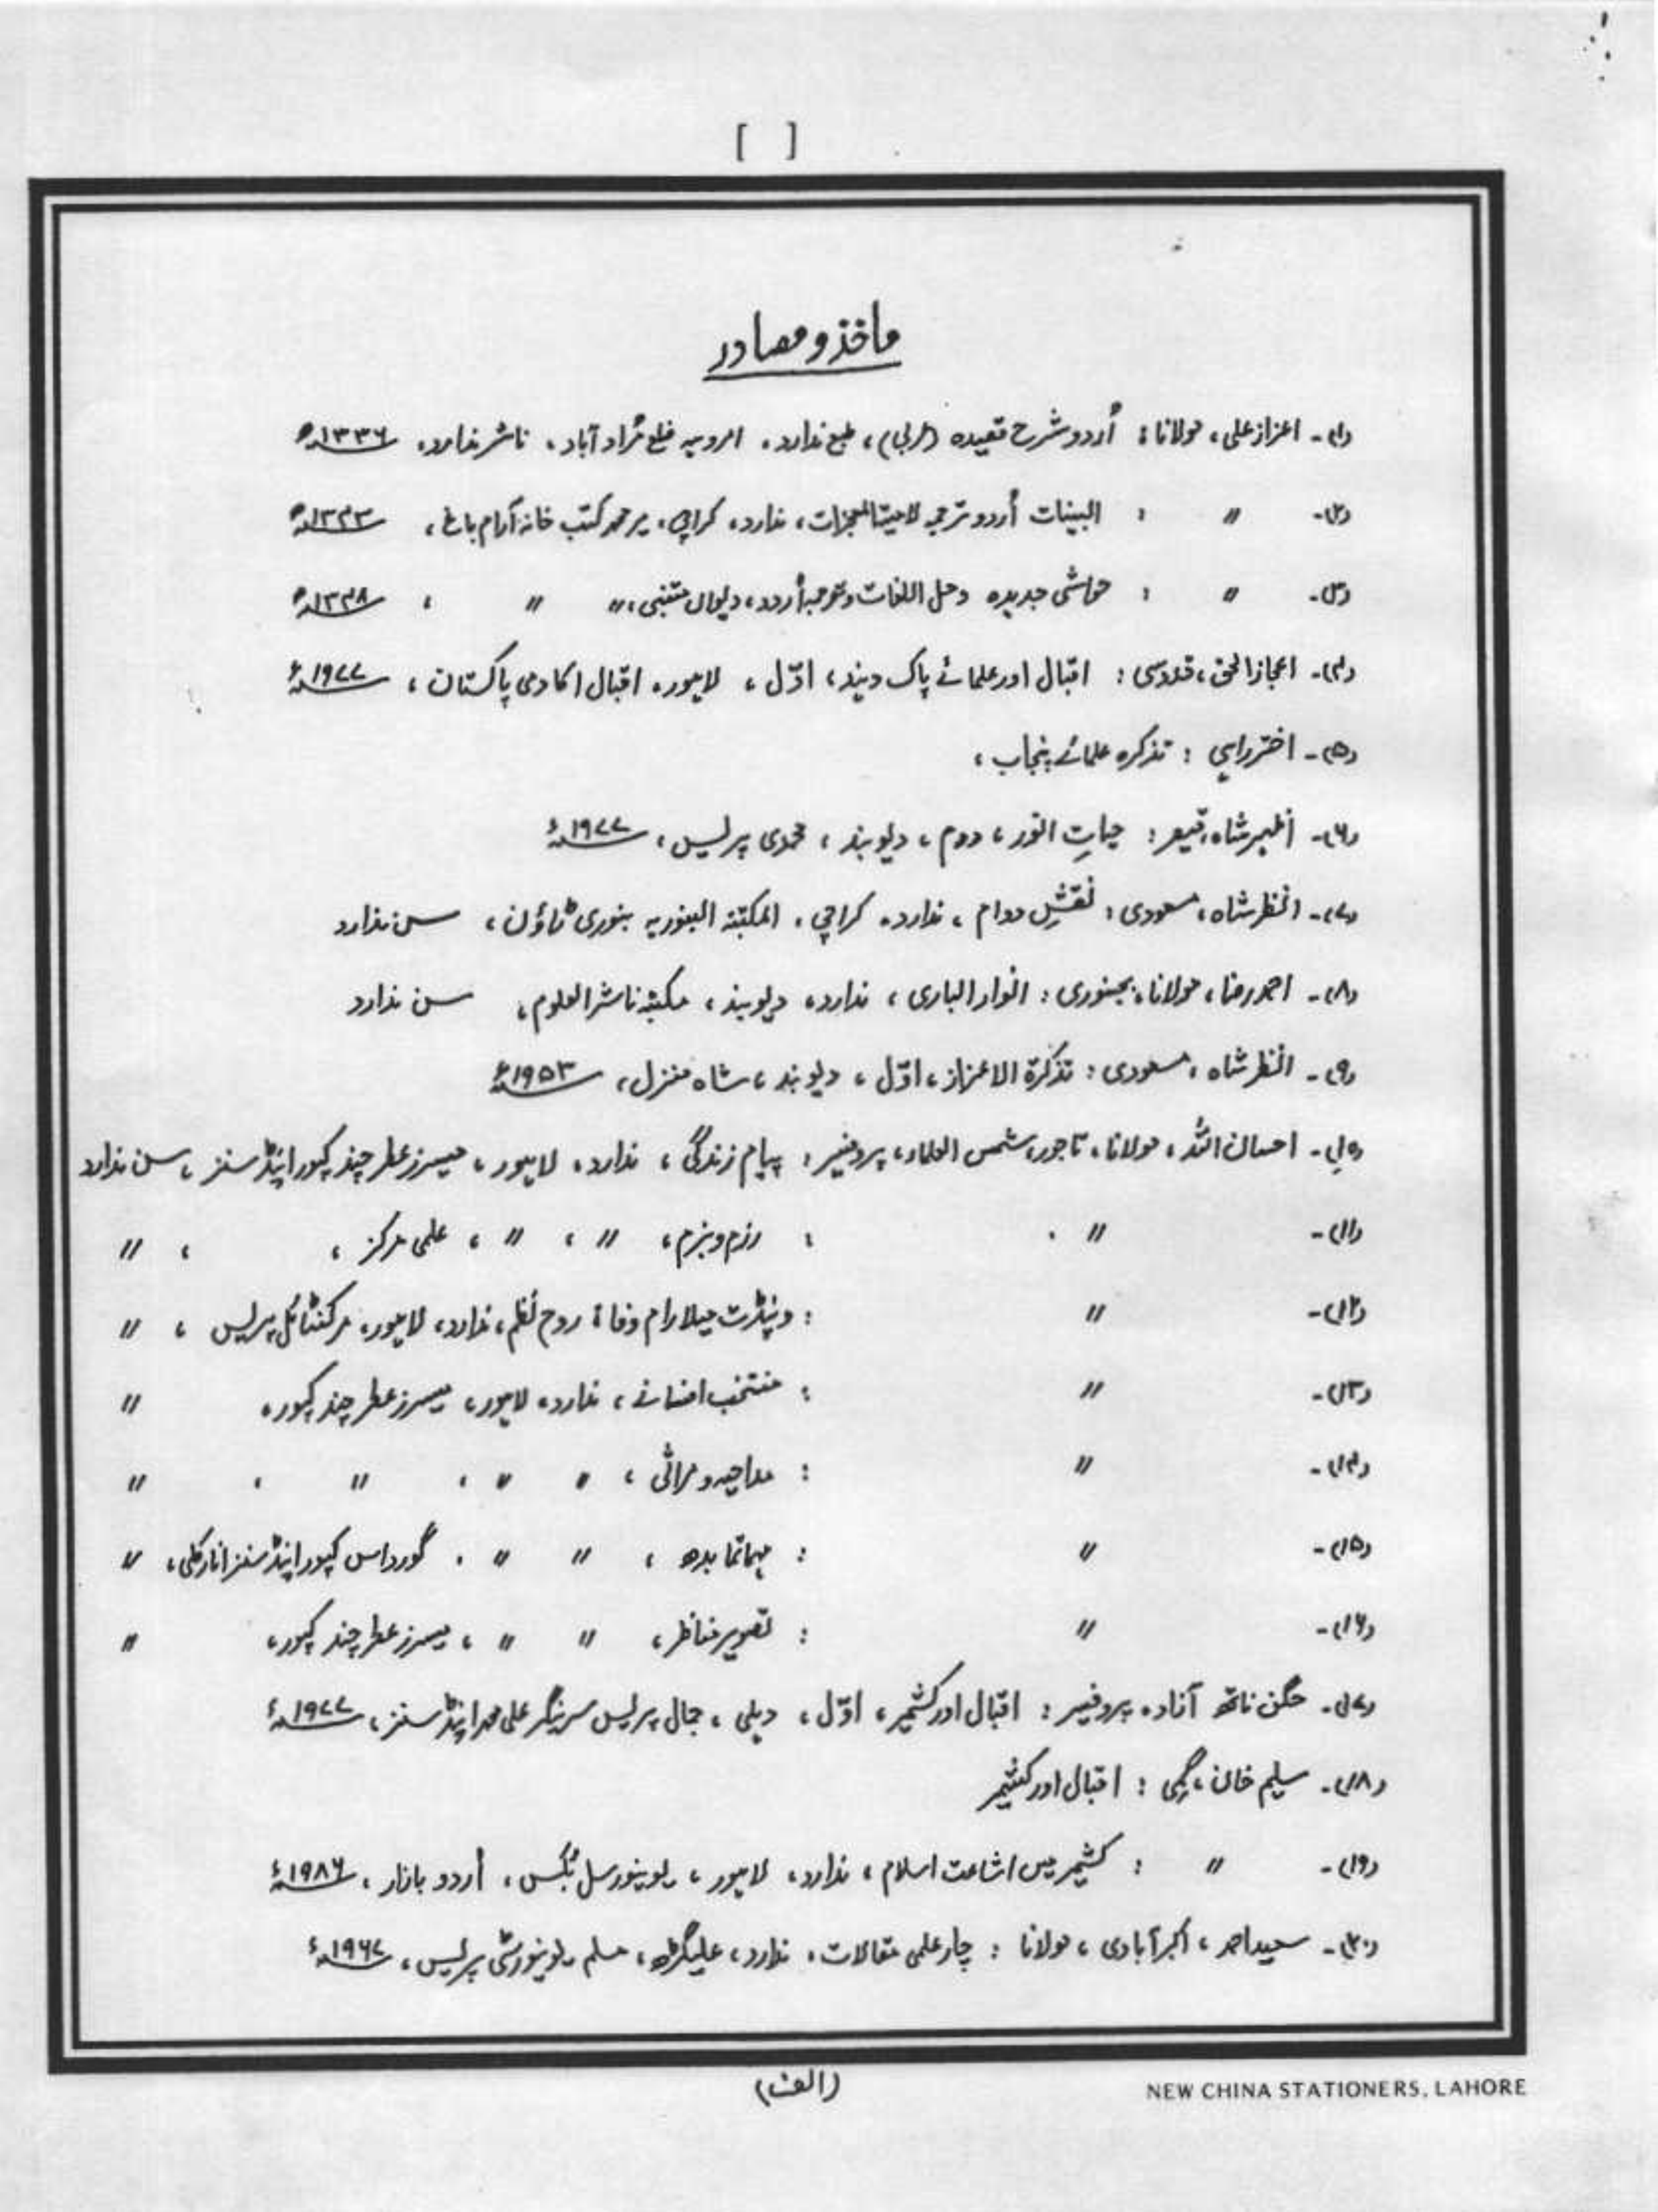 [ ]
ماخذ و مصادر
(۱)۔ اعزاز علی، مولانا: اُردو شرح قصیدہ (عربی)، طبع ندارد، امروہہ ضلع مُراد آباد، ناشر ندارد، ۱۳۳۶ھ
(۲)۔ 〃 : البینات اُردو ترجمہ لامیۃ المعجزات، ندارد، کراچی، میر محمد کتب خانہ آرام باغ، ۱۳۴۳ھ
(۳)۔ 〃 : حواشی جدیدہ و حل اللغات و ترجمہ اُردو، دیوان متنبی، 〃 〃 ، ۱۳۴۸ھ
(۴)۔ اعجاز الحق، قدوسی: اقبال اور علمائے پاک و ہند، اوّل، لاہور، اقبال اکادمی پاکستان، ۱۹۷۷ء
(۵)۔ اختر راہی: تذکرہ علمائے پنجاب،
(۶)۔ ازہر شاہ، قیصر: حیاتِ انور، دوم، دیوبند، محمدی پریس، ۱۹۷۷ء
(۷)۔ انظر شاہ، مسعودی: نقشِ دوام، ندارد، کراچی، المکتبۃ البنوریہ بنوری ٹاؤن، سن ندارد
(۸)۔ احمد رضا، مولانا، بجنوری: انوار الباری، ندارد، دیوبند، مکتبہ ناشر العلوم، سن ندارد
(۹)۔ انظر شاہ، مسعودی: تذکرۃ الاعزاز، اوّل، دیوبند، شاہ منزل، ۱۹۵۳ء
(۱۰)۔ احسان اللہ، مولانا، تاجور، شمس العلماء، پروفیسر: پیام زندگی، ندارد، لاہور، میسرز عطر چند کپور اینڈ سنز، سن ندارد
(۱۱)۔ 〃 : رزم و بزم، 〃 ، 〃 ، علمی مرکز ، ، 〃
(۱۲)۔ 〃 : و پنڈت میلا رام وفا: روح نظم، ندارد، لاہور، مرکنٹائل پریس ، 〃
(۱۳)۔ 〃 : منتخب افسانے، ندارد، لاہور، میسرز عطر چند کپور، 〃
(۱۴)۔ 〃 : و مراثی ، 〃 〃 ، 〃 ، 〃
(۱۵)۔ 〃 : مہاتما بدھ ، 〃 〃 ، گورداس کپور اینڈ سنز انارکلی، 〃
(۱۶)۔ 〃 : تصویر مناظر، 〃 〃 ، میسرز عطر چند کپور، 〃
(۱۷)۔ جگن ناتھ آزاد، پروفیسر: اقبال اور کشمیر، اوّل، دہلی، جمال پریس سرینگر علی محمد اینڈ سنز، ۱۹۷۷ء
(۱۸)۔ سلیم خان، گمی: اقبال اور کشمیر
(۱۹)۔ 〃 : کشمیر میں اشاعت اسلام، ندارد، لاہور، یونیورسل بُکس، اُردو بازار، ۱۹۸۶ء
(۲۰)۔ سعید احمد، اکبر آبادی، مولانا: چار علمی مقالات، ندارد، علیگڑھ، مسلم یونیورسٹی پریس، ۱۹۶۷ء
(الف)
NEW CHINA STATIONERS, LAHORE